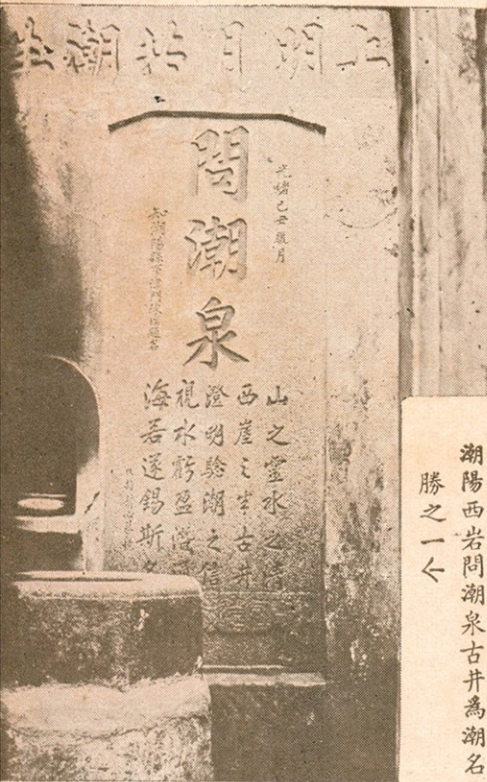 上明月共潮生
光緒己丑嵗月
問潮泉
山之靈水之清
西崖之半古井
澄明驗潮之信
視水虧盈
海若遂錫斯名
潮陽西岩問潮泉古井爲潮名
勝之一